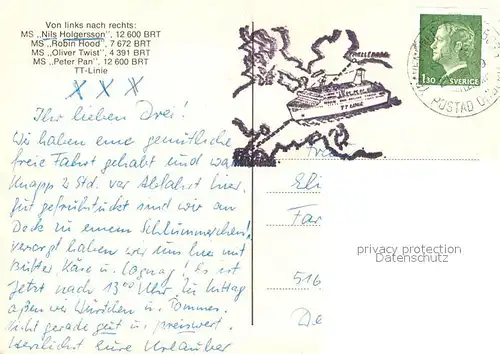 Von links nach rechts:
MS „Nils Holgersson", 12 600 BRT
MS „Robin Hood", 7 672 BRT
MS „Oliver Twist", 4 391 BRT
MS „Peter Pan", 12 600 BRT
TT-Linie
x x x
Ihr lieben Drei!
Wir haben eine gemütliche
freie Fahrt gehabt und war
knapp 2 Std. vor Abfahrt hier.
Gut gefrühstückt sind wir an
Deck zu einem Schlummerchen!
versorgt haben wir uns hier mit
Butter, Käse u. Cognag! Es ist
Jetzt nach 13⁰⁰ Uhr. Zu Mittag
aßen wir Würstchen u. Pommes.
Nicht gerade gut u. preiswert.
Herzlichst Eure Urlauber
TRELLEBORG
TT LINIE
1.30 SVERIGE
POSTAD
Eli
Far
516
De
privacy protection
watermark